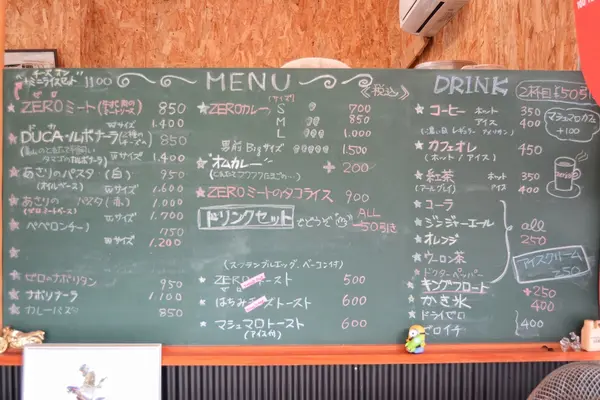 MENU
《税込》
チーズオン
+ミニライスセット 1100
ZEROミート 850
Wサイズ 1.400
DUCA・ルボナーラ 850
Wサイズ 1.400
あさりのパスタ (白) 950
(オイルベース) Wサイズ 1.600
あさりのパスタ(赤) 1.000
Wサイズ 1.700
ペペロンチーノ 750
Wサイズ 1.200
ゼロのナポリタン 950
ナポリナーラ 1.100
カレーパスタ 850
(サイズ)
ZEROカレー S 700
M 850
L 1.000
男前Bigサイズ 1.500
オムカレー + 200
ZEROミートのタコライス 900
ドリンクセット でどうぞ ALL -50引き
(スクランブルエッグ、ベーコン付)
ZERO トースト 500
はちみ トースト 600
マシュマロトースト 600
(アイス付)
DRINK
2杯目¥50引
コーヒー ホット 350
アイス 400
マシュマロカフェ
+100
カフェオレ 450
(ホット/アイス)
紅茶 ホット 350
(アールグレイ) アイス 400
コーラ
ジンジャーエール all
オレンジ 250
ウーロン茶
ドクターペッパー
アイスクリーム
250
キングフロート +250
かき氷 400
ドライゼロ 400